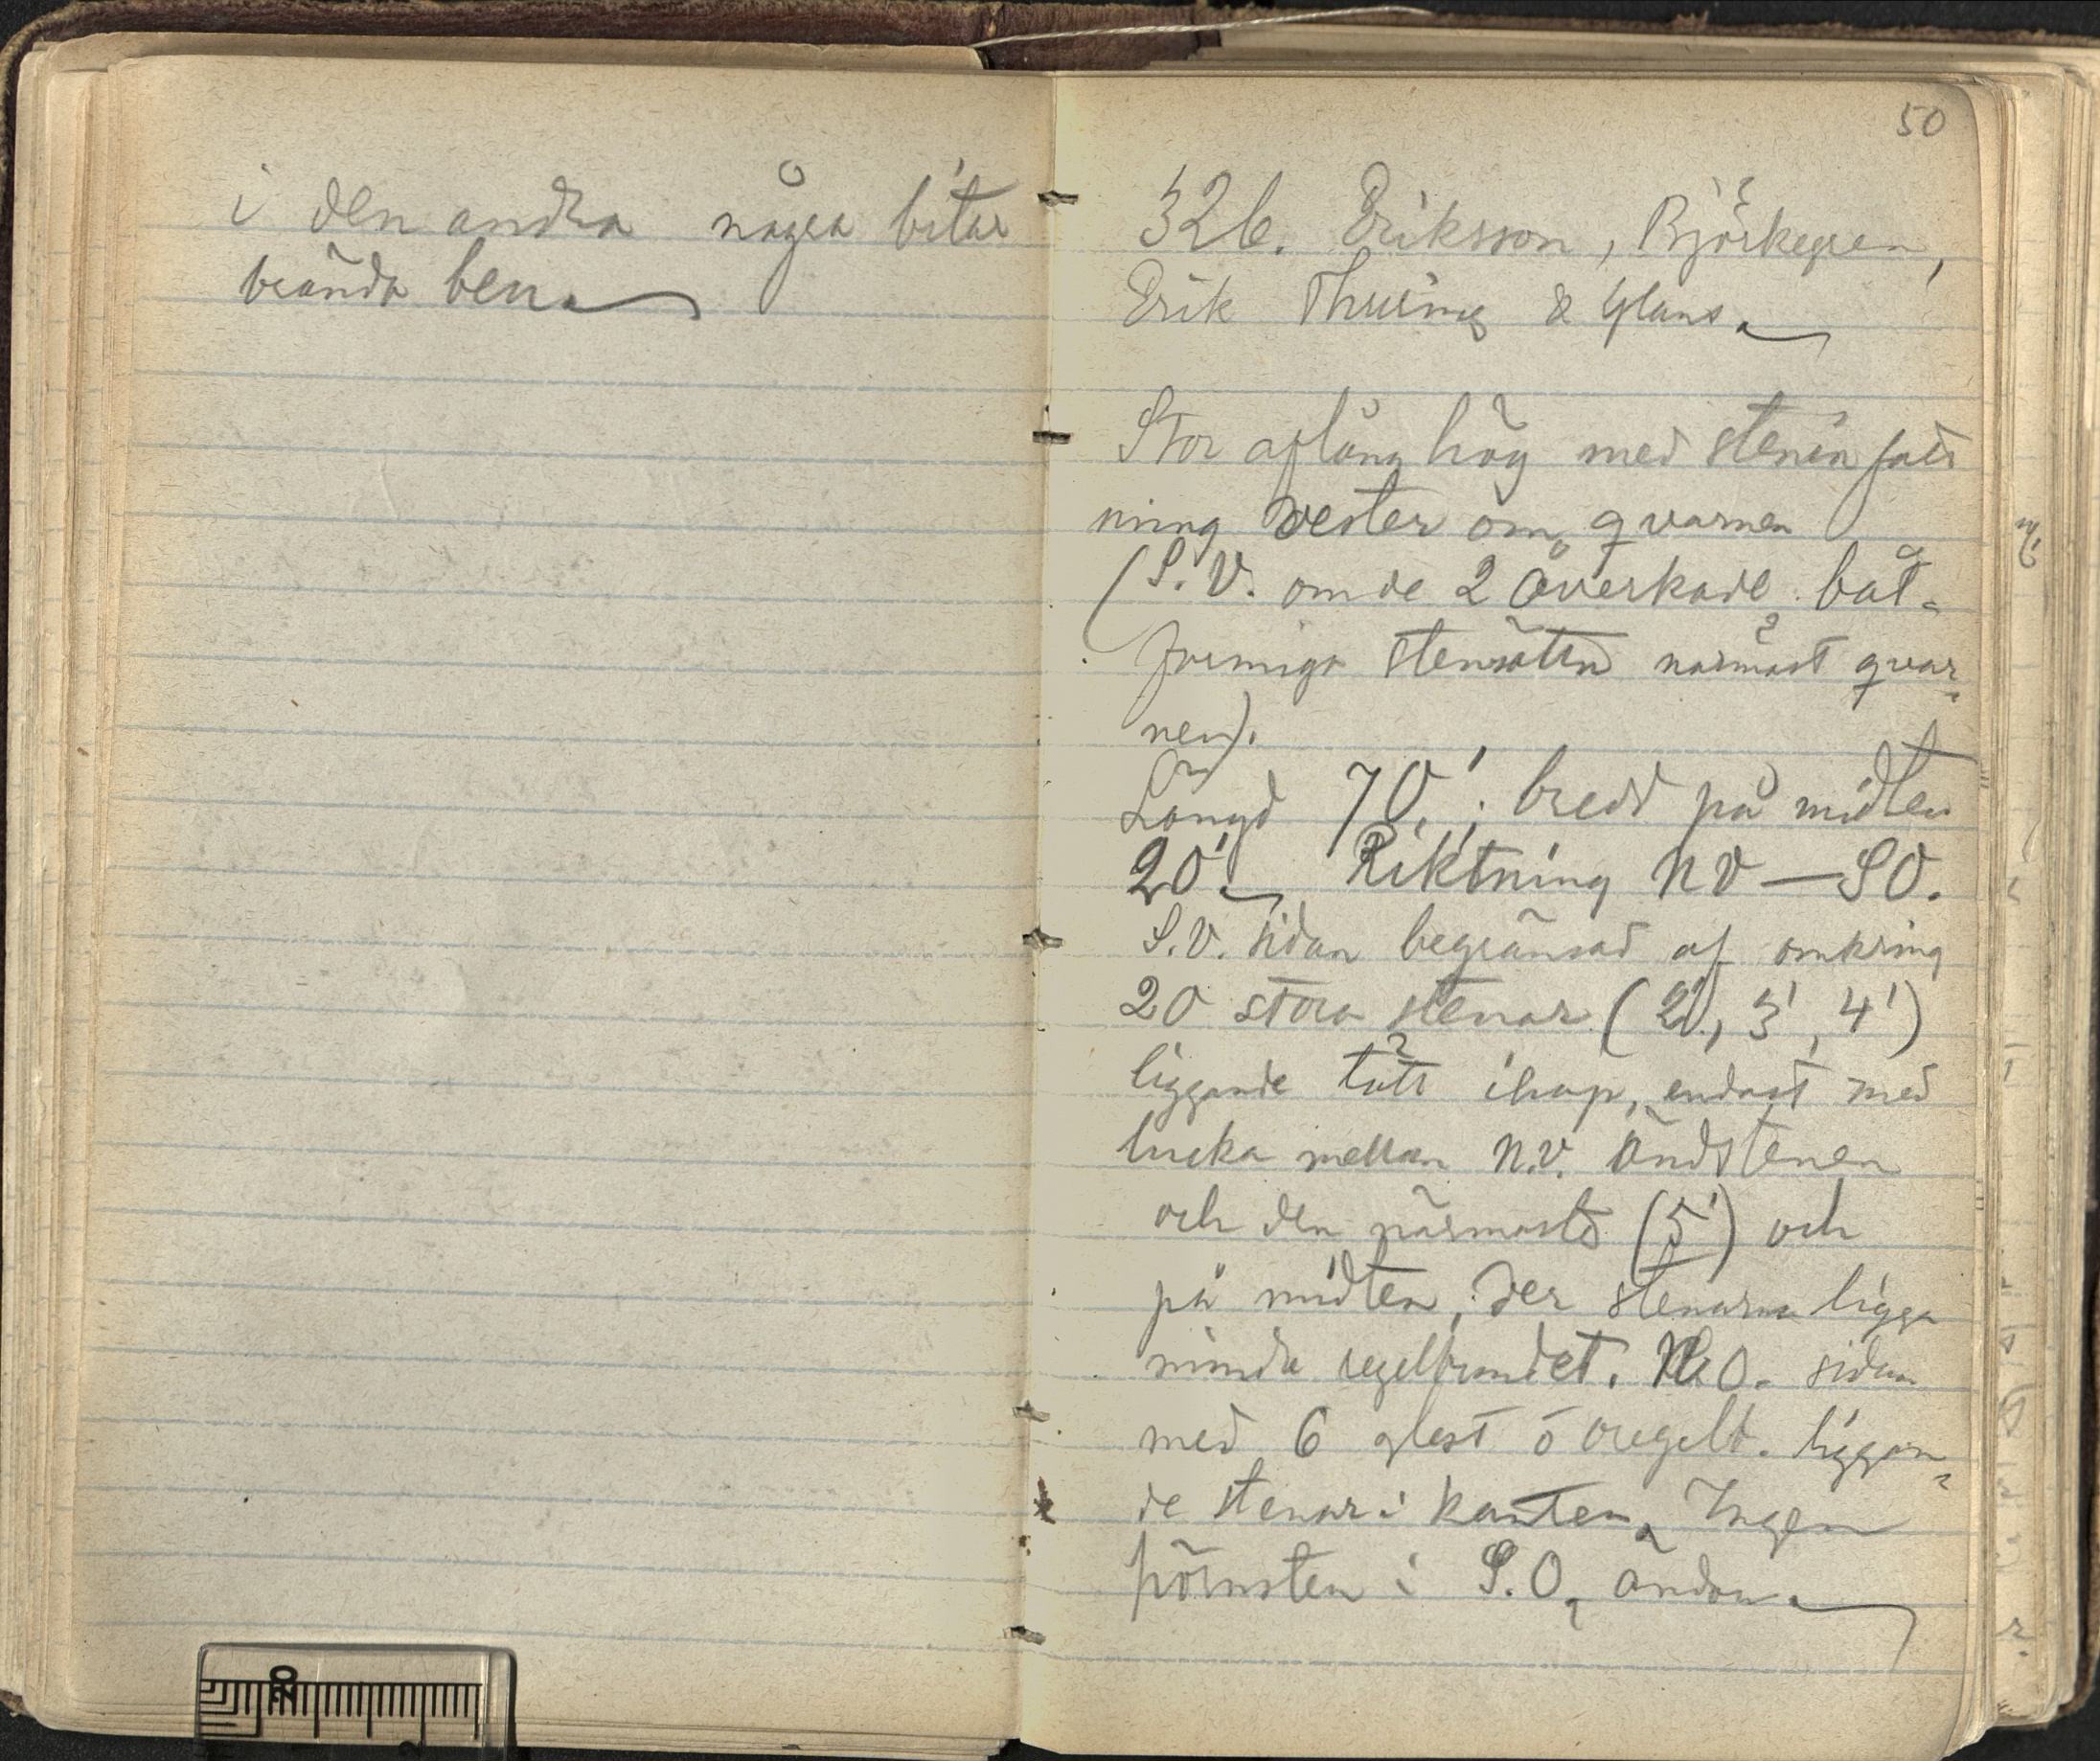 i den andra några bitar
brända ben.
50
326. Eriksson, Björkegren,
Erik Thuring & Glans.
Stor aflång hög med steninfatt
ning vester om qvarnen
(S.V. om de 2 åverkade båt-
formiga stensättn närmast qvar-
nen).
Längd 70'; bredd på midten
20'. Riktning NV—SO.
S.V. sidan begränsad af omkring
20 stora stenar (2', 3', 4')
liggande tätt ihop, endast med
lucka mellan N.V. ändstenen
och den närmaste (5') och
på midten, der stenarna ligga
mindre regelbundet. N.O. sidan
med 6 glest o oregelb. liggan-
de stenar i kanten. Ingen
hörnsten i S.O. ändan.
20